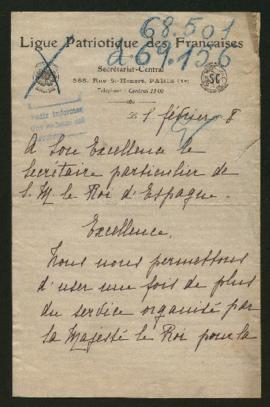 68.501
269.156
Ligue Patriotique des Françaises
Secrétariat-Central
368, Rue St-Honoré, PARIS (1er)
Téléphone : Central 13-00
SC
1 février 8
A Son Excellence le
Secrétaire particulier de
S. M. le Roi d'Espagne.
Excellence,
Nous nous permettons
d'user une fois de plus
du service organisé par
sa Majesté le Roi pour la